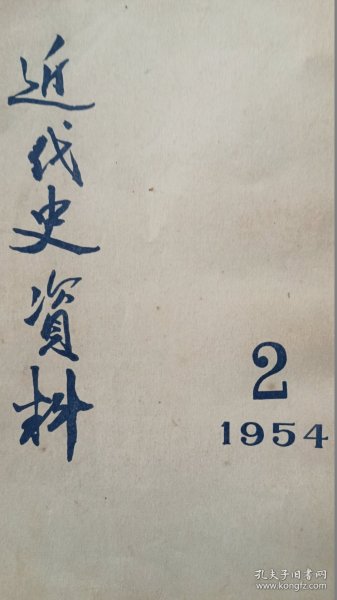 近代史資料
2
1954
孔夫子旧书网
www.kongfz.com